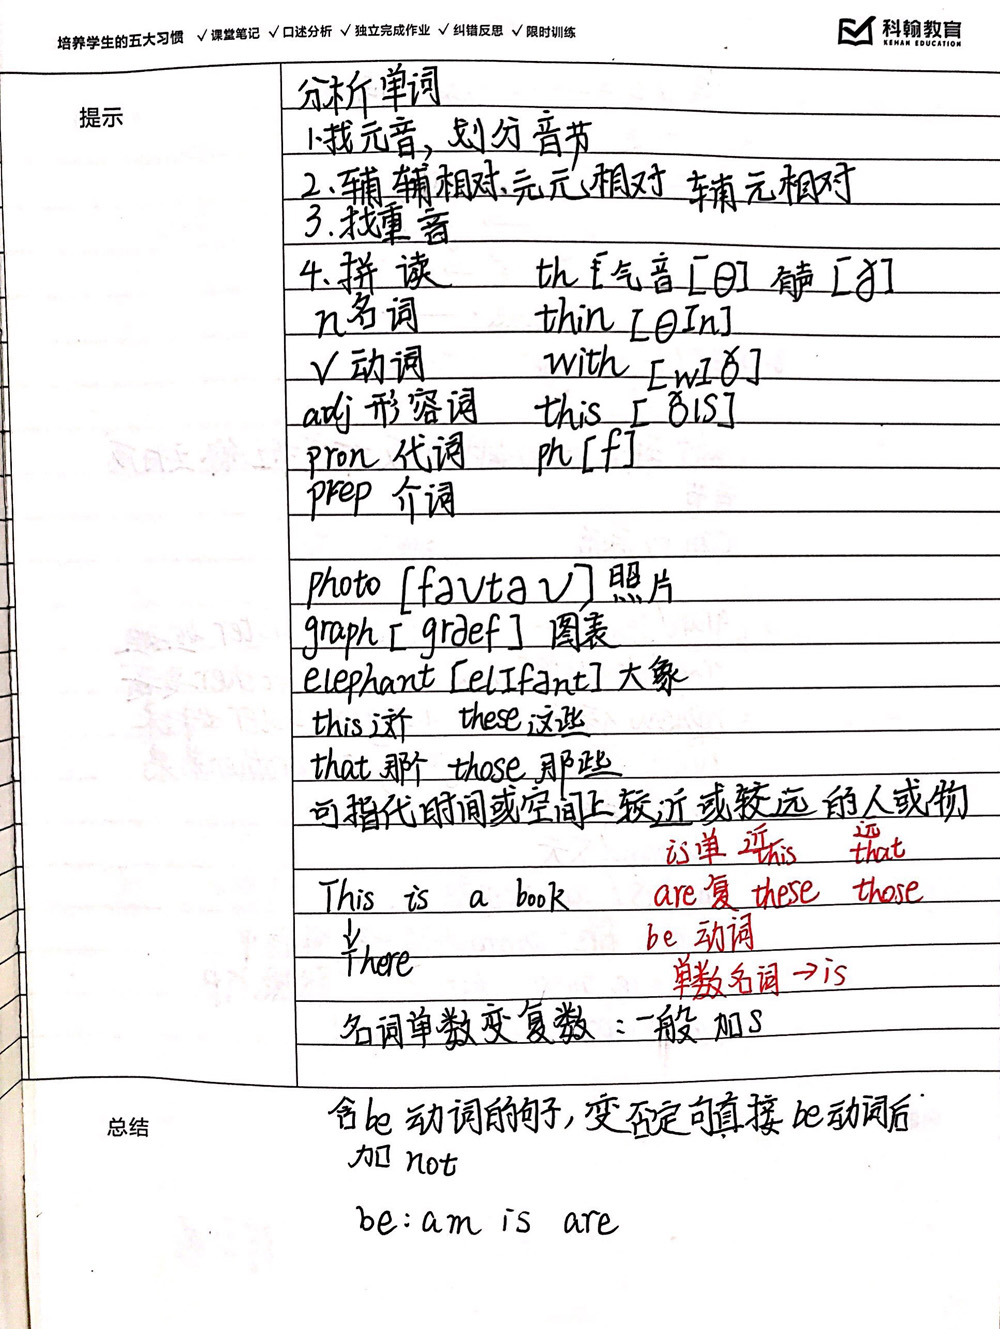 培养学生的五大习惯 ✓课堂笔记 ✓口述分析 ✓独立完成作业 ✓纠错反思 ✓限时训练
科翰教育
KEHAN EDUCATION
提示
分析单词
1.找元音，划分音节
2.辅辅相对、元元相对 辅元相对
3.找重音
4.拼读 th [气音[θ] 有声[ð]
n名词 thin [θIn]
v动词 with [wIð]
adj形容词 this [ðIS]
pron代词 ph[f]
prep 介词
photo [fəʊtəʊ]照片
graph[græf] 图表
elephant [elIfənt]大象
this这个 these这些
that那个 those那些
可指代时间或空间上较近或较远的人或物
is单 近this 远that
This is a book are复 these those
↓ be 动词
There
单数名词→is
名词单数变复数：一般加s
总结
含be动词的句子，变否定句直接be动词后
加not
be: am is are